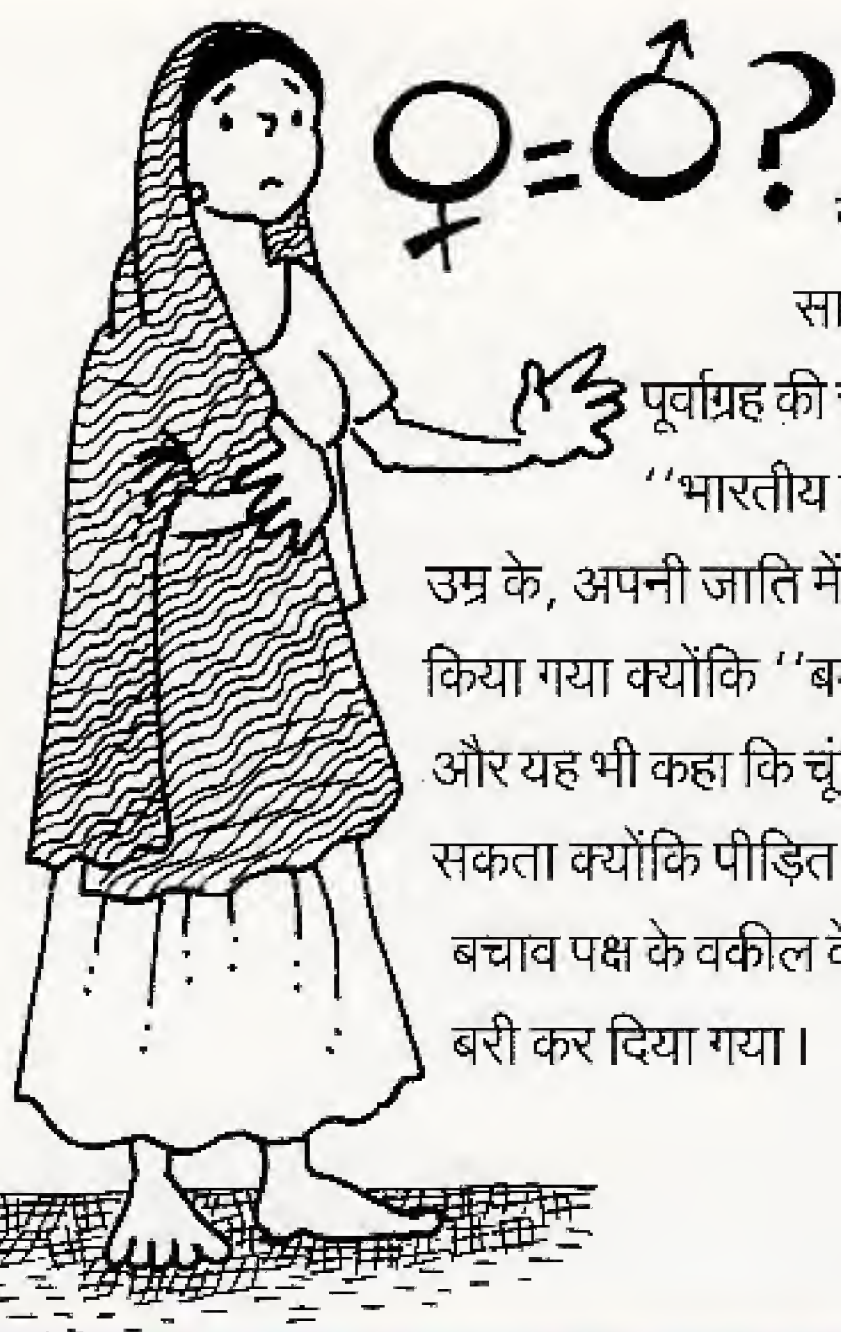 ♀=♂?
सा
पूर्वाग्रह की
‘‘भारतीय
उम्र के, अपनी जाति में
किया गया क्योंकि ‘‘
और यह भी कहा कि चूं
सकता क्योंकि पीड़ित
बचाव पक्ष के वकील
बरी कर दिया गया।